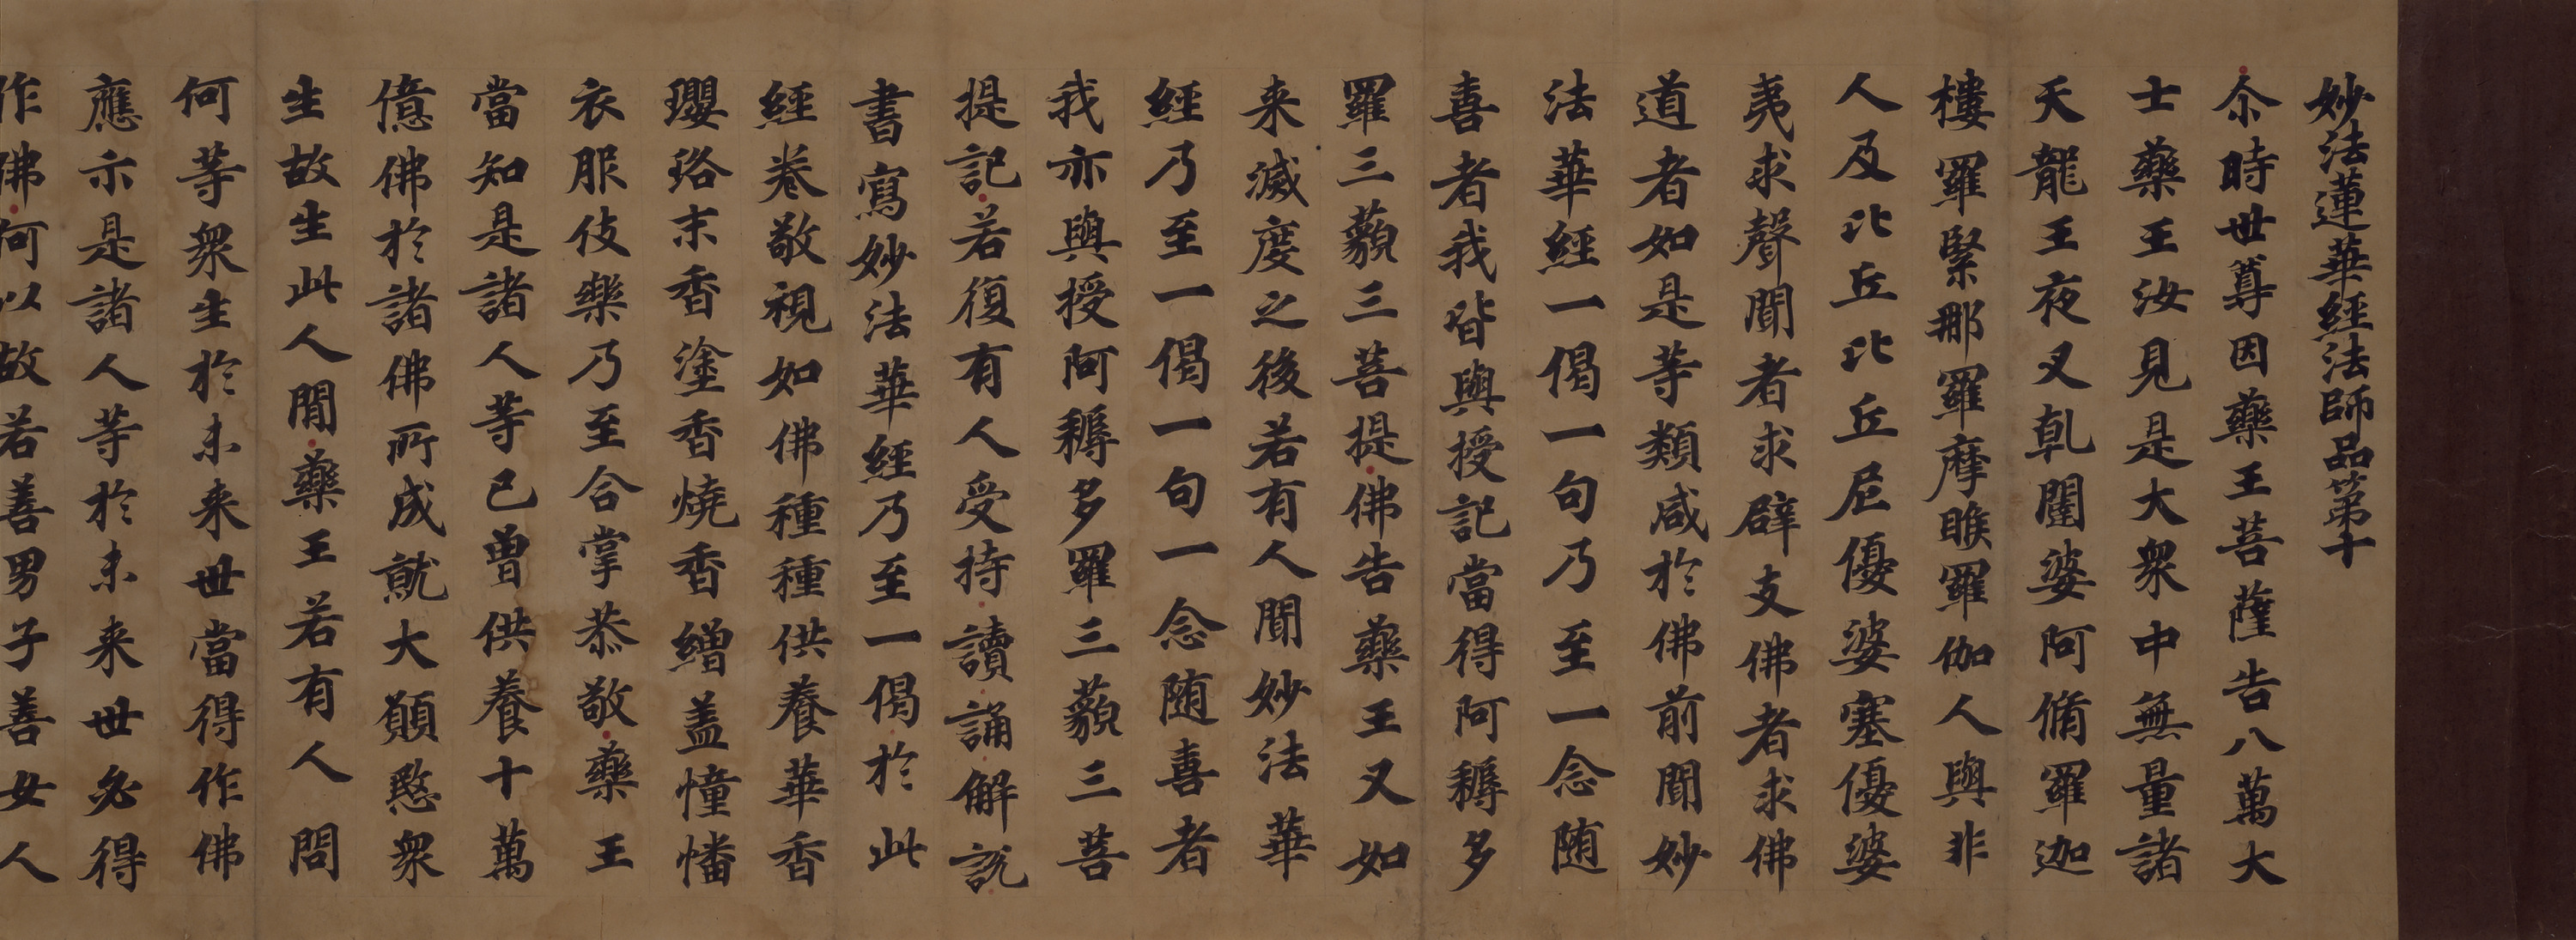 妙法蓮華經法師品第十
尒時世尊因藥王菩薩告八萬大
士藥王汝見是大衆中無量諸
天龍王夜叉乹闥婆阿脩羅迦
樓羅緊那羅摩睺羅伽人與非
人及比丘比丘尼優婆塞優婆
夷求聲聞者求辟支佛者求佛
道者如是等類咸於佛前聞妙
法華經一偈一句乃至一念随
喜者我皆與授記當得阿耨多
羅三藐三菩提佛告藥王又如
来滅度之後若有人聞妙法華
經乃至一偈一句一念随喜者
我亦與授阿耨多羅三藐三菩
提記若復有人受持讀誦解説
書寫妙法華經乃至一偈於此
經卷敬視如佛種種供養華香
瓔珞末香塗香燒香繒盖幢幡
衣服伎樂乃至合掌恭敬藥王
當知是諸人等已曽供養十萬
億佛於諸佛所成就大願愍衆
生故生此人間藥王若有人問
何等衆生於未来世當得作佛
應示是諸人等於未来世必得
作佛何以故若善男子善女人